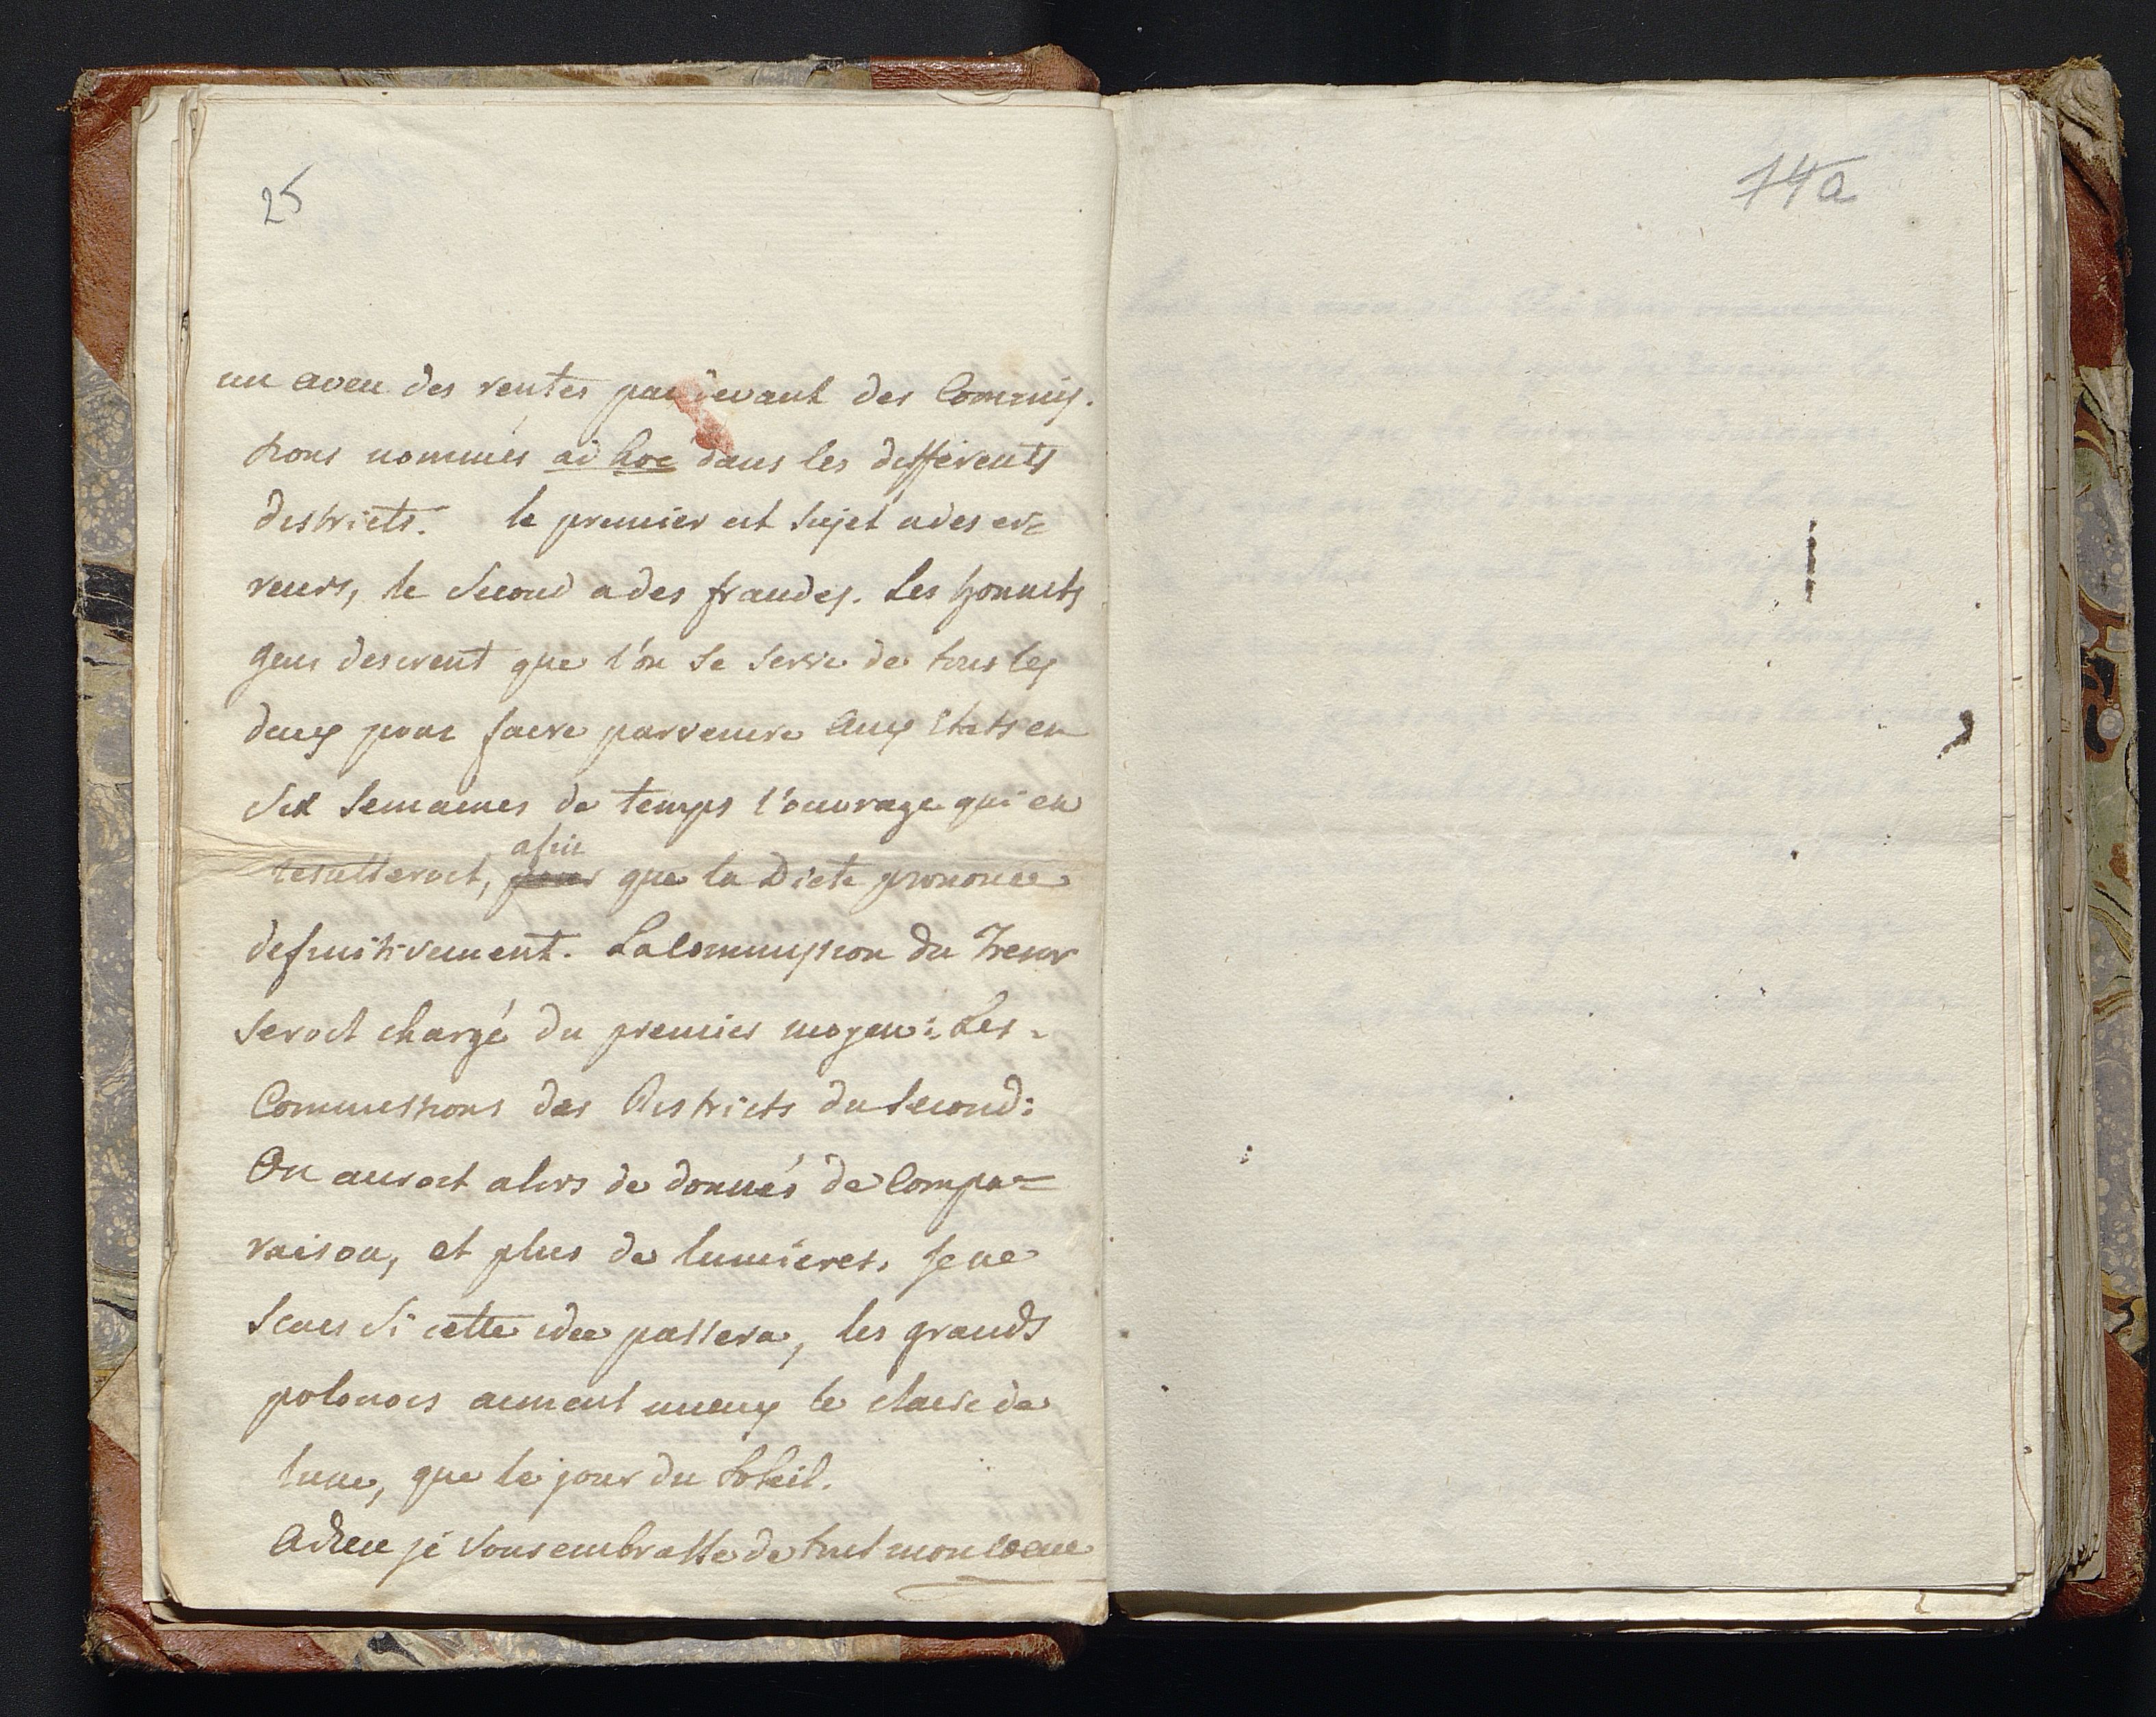 25
un aveu des rentes pardevant des Commis-
sions nommés ad hoc dans les differents
districts. le premier est sujet a des er=
reurs, le second a des fraudes. Les honnets
gens desirent que l'on se serve de tous les
deux pour faire parvenire aux Etats en
six semaines de temps l'ouvrage qui en
resulteroit, afin
pour que la Diete prononce
definitivement. La Commission du Tresor
seroit chargé du premier moyen: Les
Commissions des Districts du second:
On auroit alors de donnés de Compa=
raison, et plus de lumieres. Je ne
scais si cette idee passera, les grands
polonois aiment mieux le claire de
lune, que le jour du Soleil.
Adieu je vous embrasse de tout mon coeur
14a